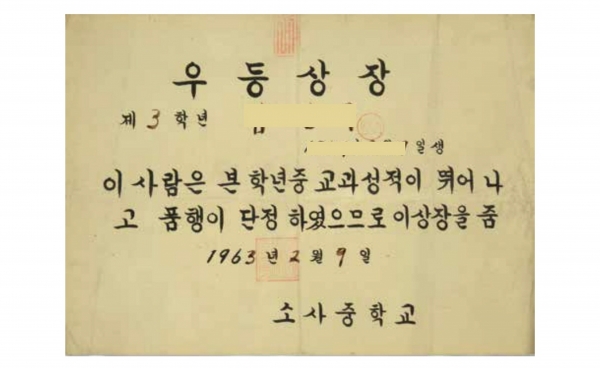 우등상장
제 3 학년
일생
이 사람은 본 학년중 교과성적이 뛰어나
고 품행이 단정 하였으므로 이상장을 줌
1963년 2월 9일
소사중학교